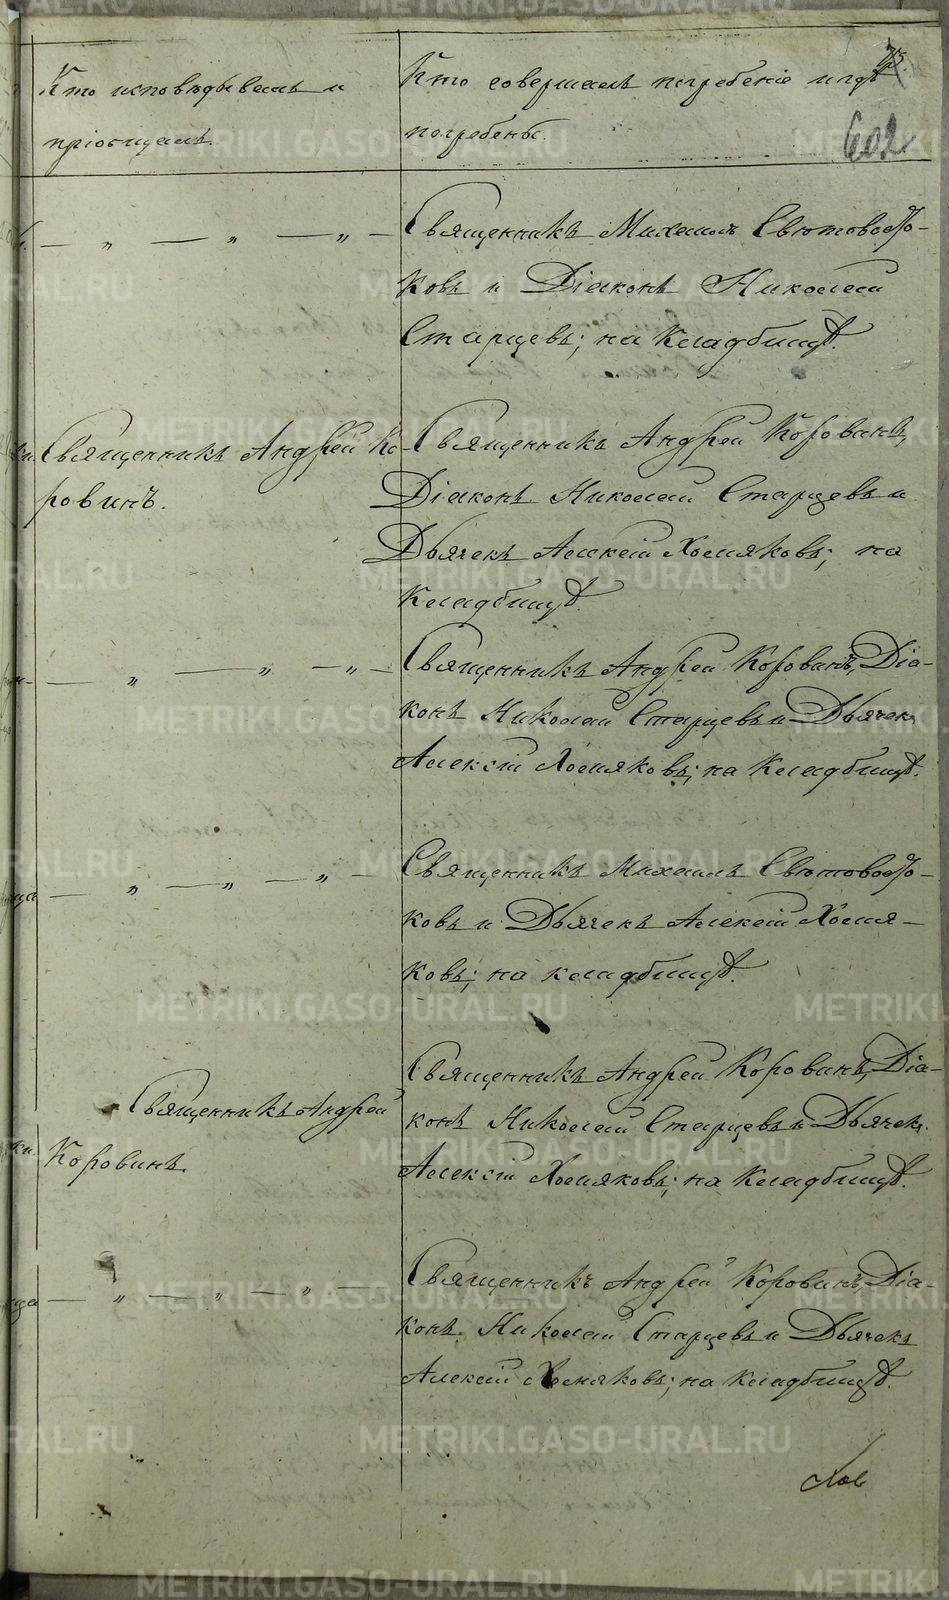 Кто исповѣдывалъ и
пріобщалъ.
Кто совершалъ погребеніе и гдѣ
погребены.
602
— „ — „ — „ —
Священникъ Михаилъ
ковъ и Діаконъ Николай
Старцевъ; на Кладбищѣ.
Священникъ Андрей Ко-
ровинъ.
Священникъ Андрей Коровинъ,
Діаконъ Николай Старцевъ и
Дьячекъ Алексій Хомяковъ; на
Кладбищѣ.
— „ — „ — „ —
Священникъ Андрей Коровинъ, Діа-
конъ Николай Старцевъ и Дьячекъ
Алексій Хомяковъ; на Кладбищѣ.
— „ — „ — „ —
Священникъ Михаилъ
ковъ и Дьячекъ Алексій Хомя-
ковъ; на кладбищѣ.
Священникъ Андрей
Коровинъ.
Священникъ Андрей Коровинъ, Діа-
конъ Николай Старцевъ и Дьячекъ
Алексій Хомяковъ; на Кладбищѣ.
— „ — „ — „ —
Священникъ Андрей Коровинъ, Діа-
конъ Николай Старцевъ и Дьячекъ
Алексій Хомяковъ; на Кладбищѣ.
METRIKI.GASO-URAL.RU